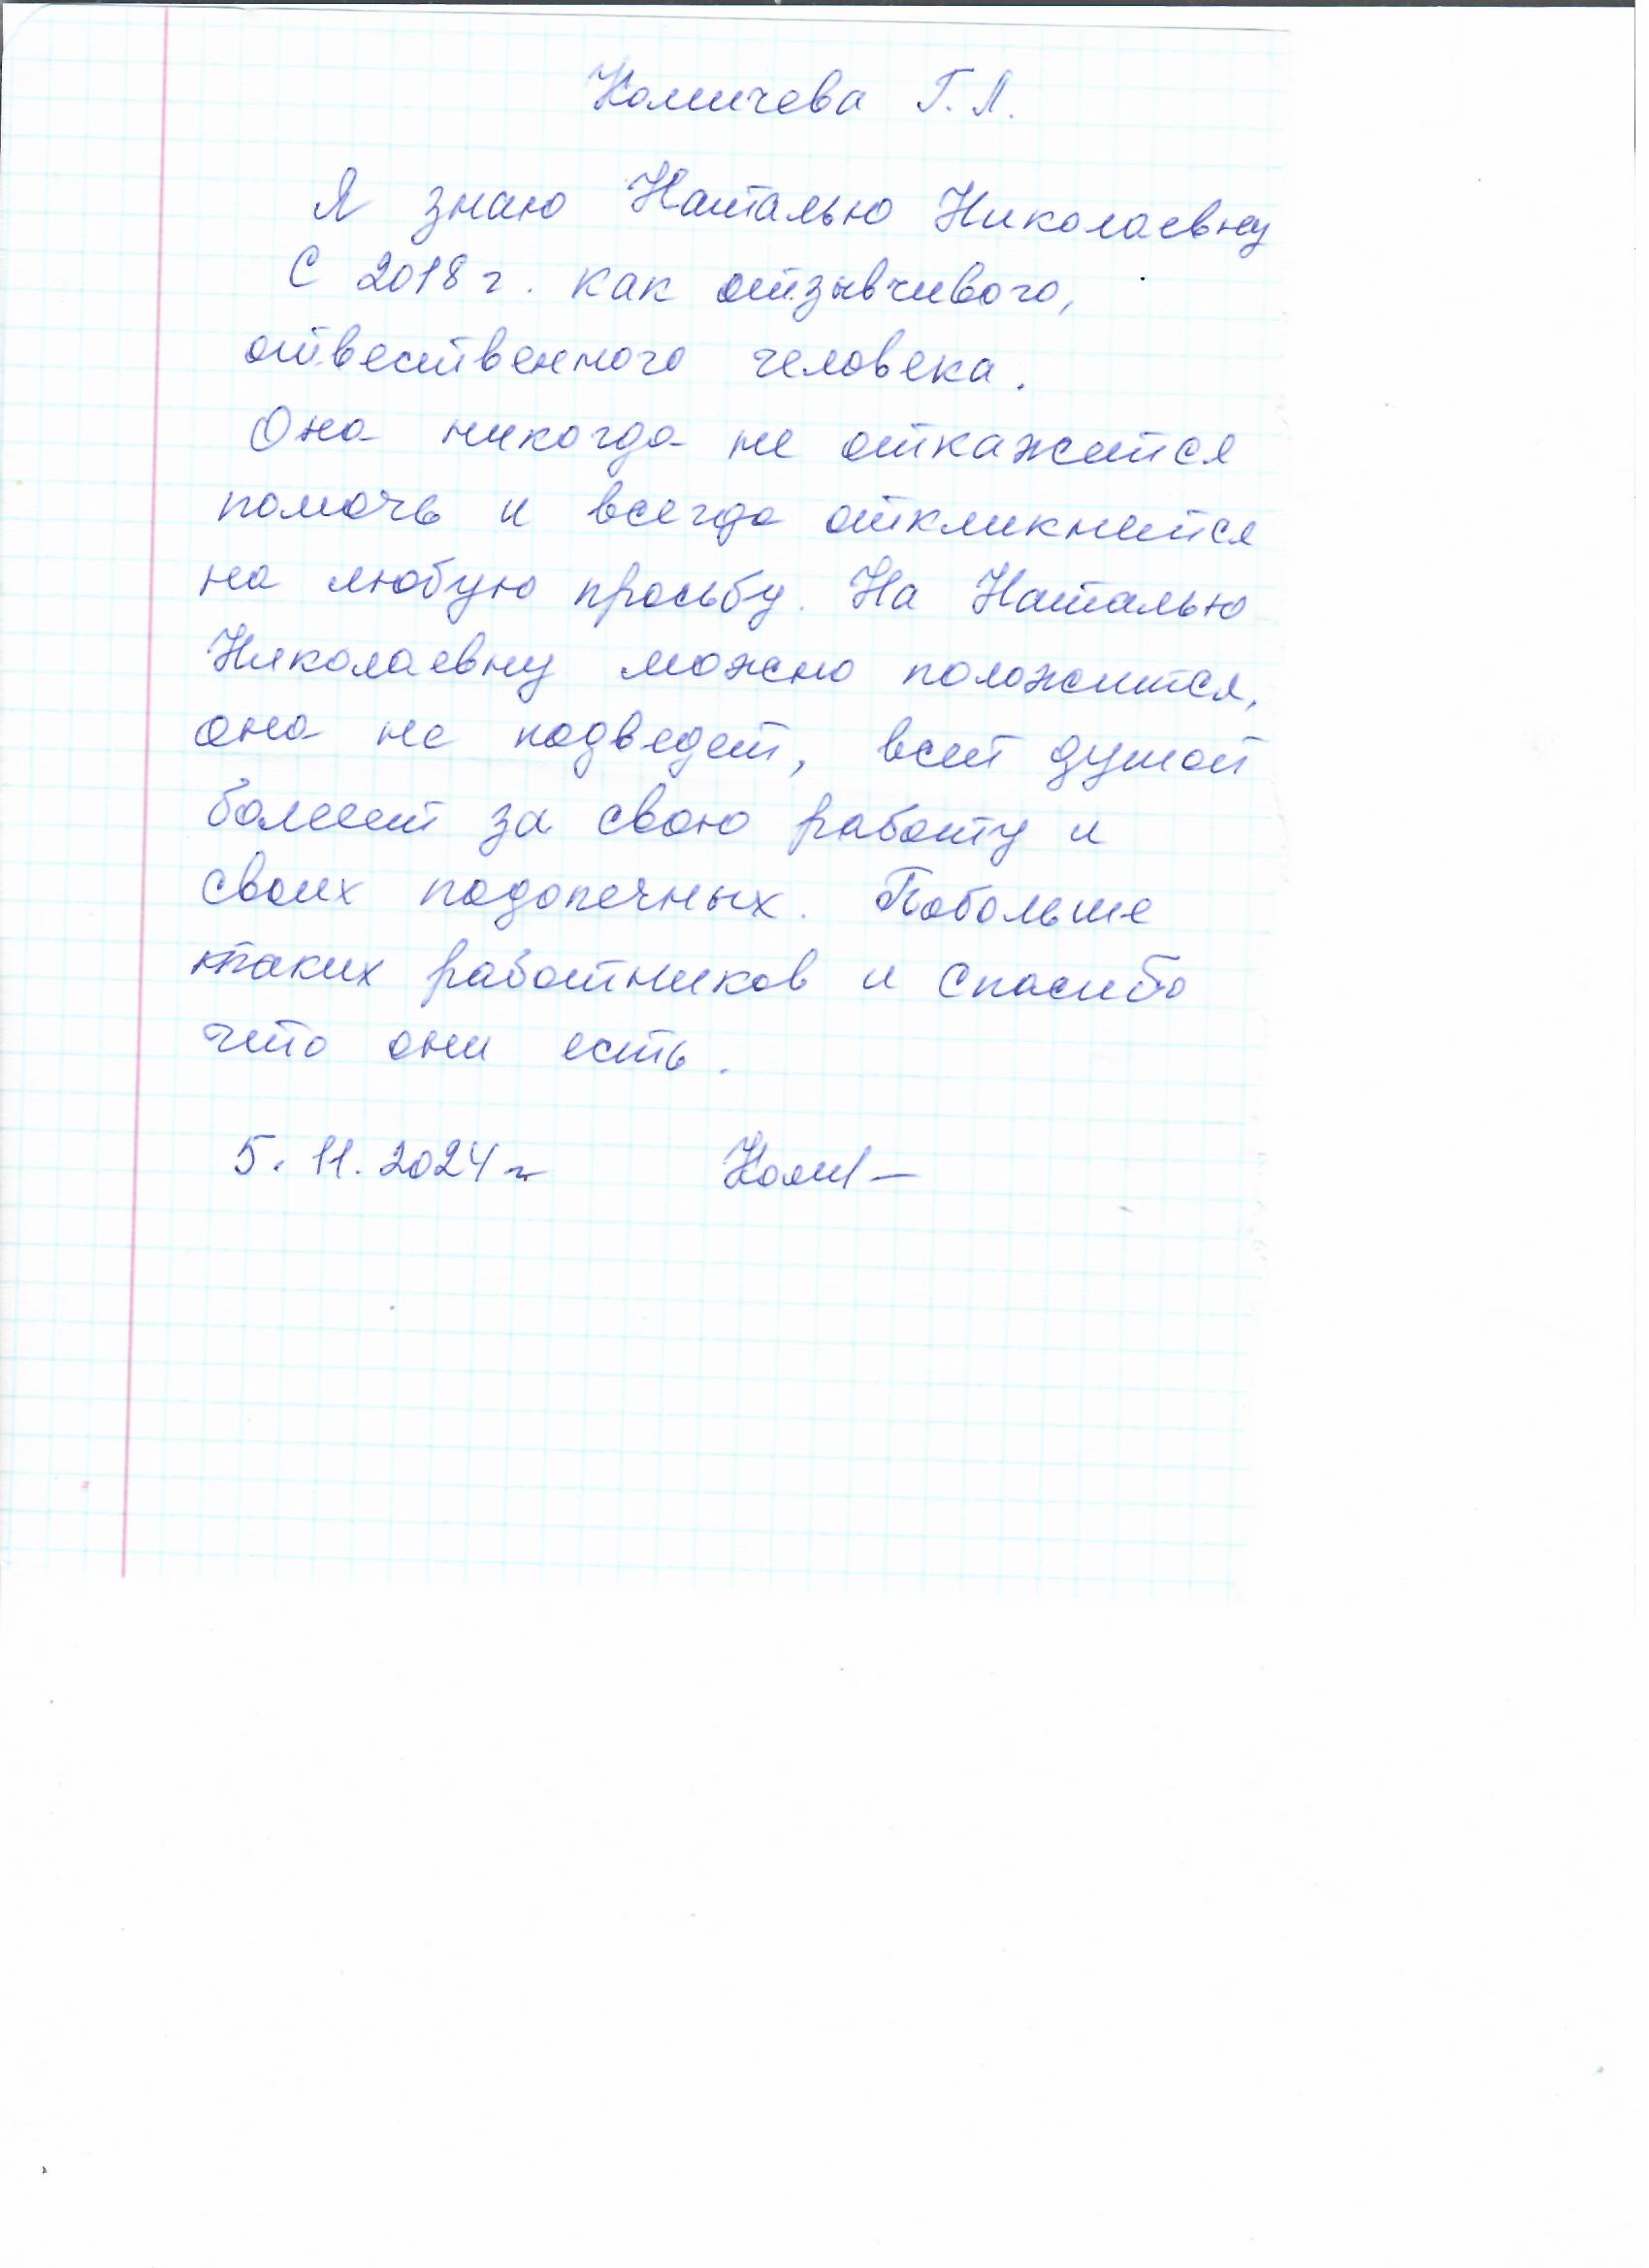 Комичева Г.Л.
Я знаю Наталью Николаевну
С 2018 г. как отзывчивого,
отвественного человека.
Она никогда не откажется
помочь и всегда откликнется
на любую просьбу. На Наталью
Николаевну можно положится,
она не подведет, всей душой
болеет за свою работу и
своих подопечных. Побольше
таких работников и спасибо
что они есть.
5.11.2024 г. Коми